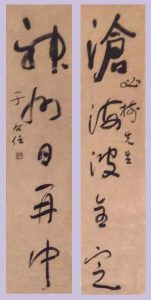 滄海波全定
先生
神州日再中
于右任